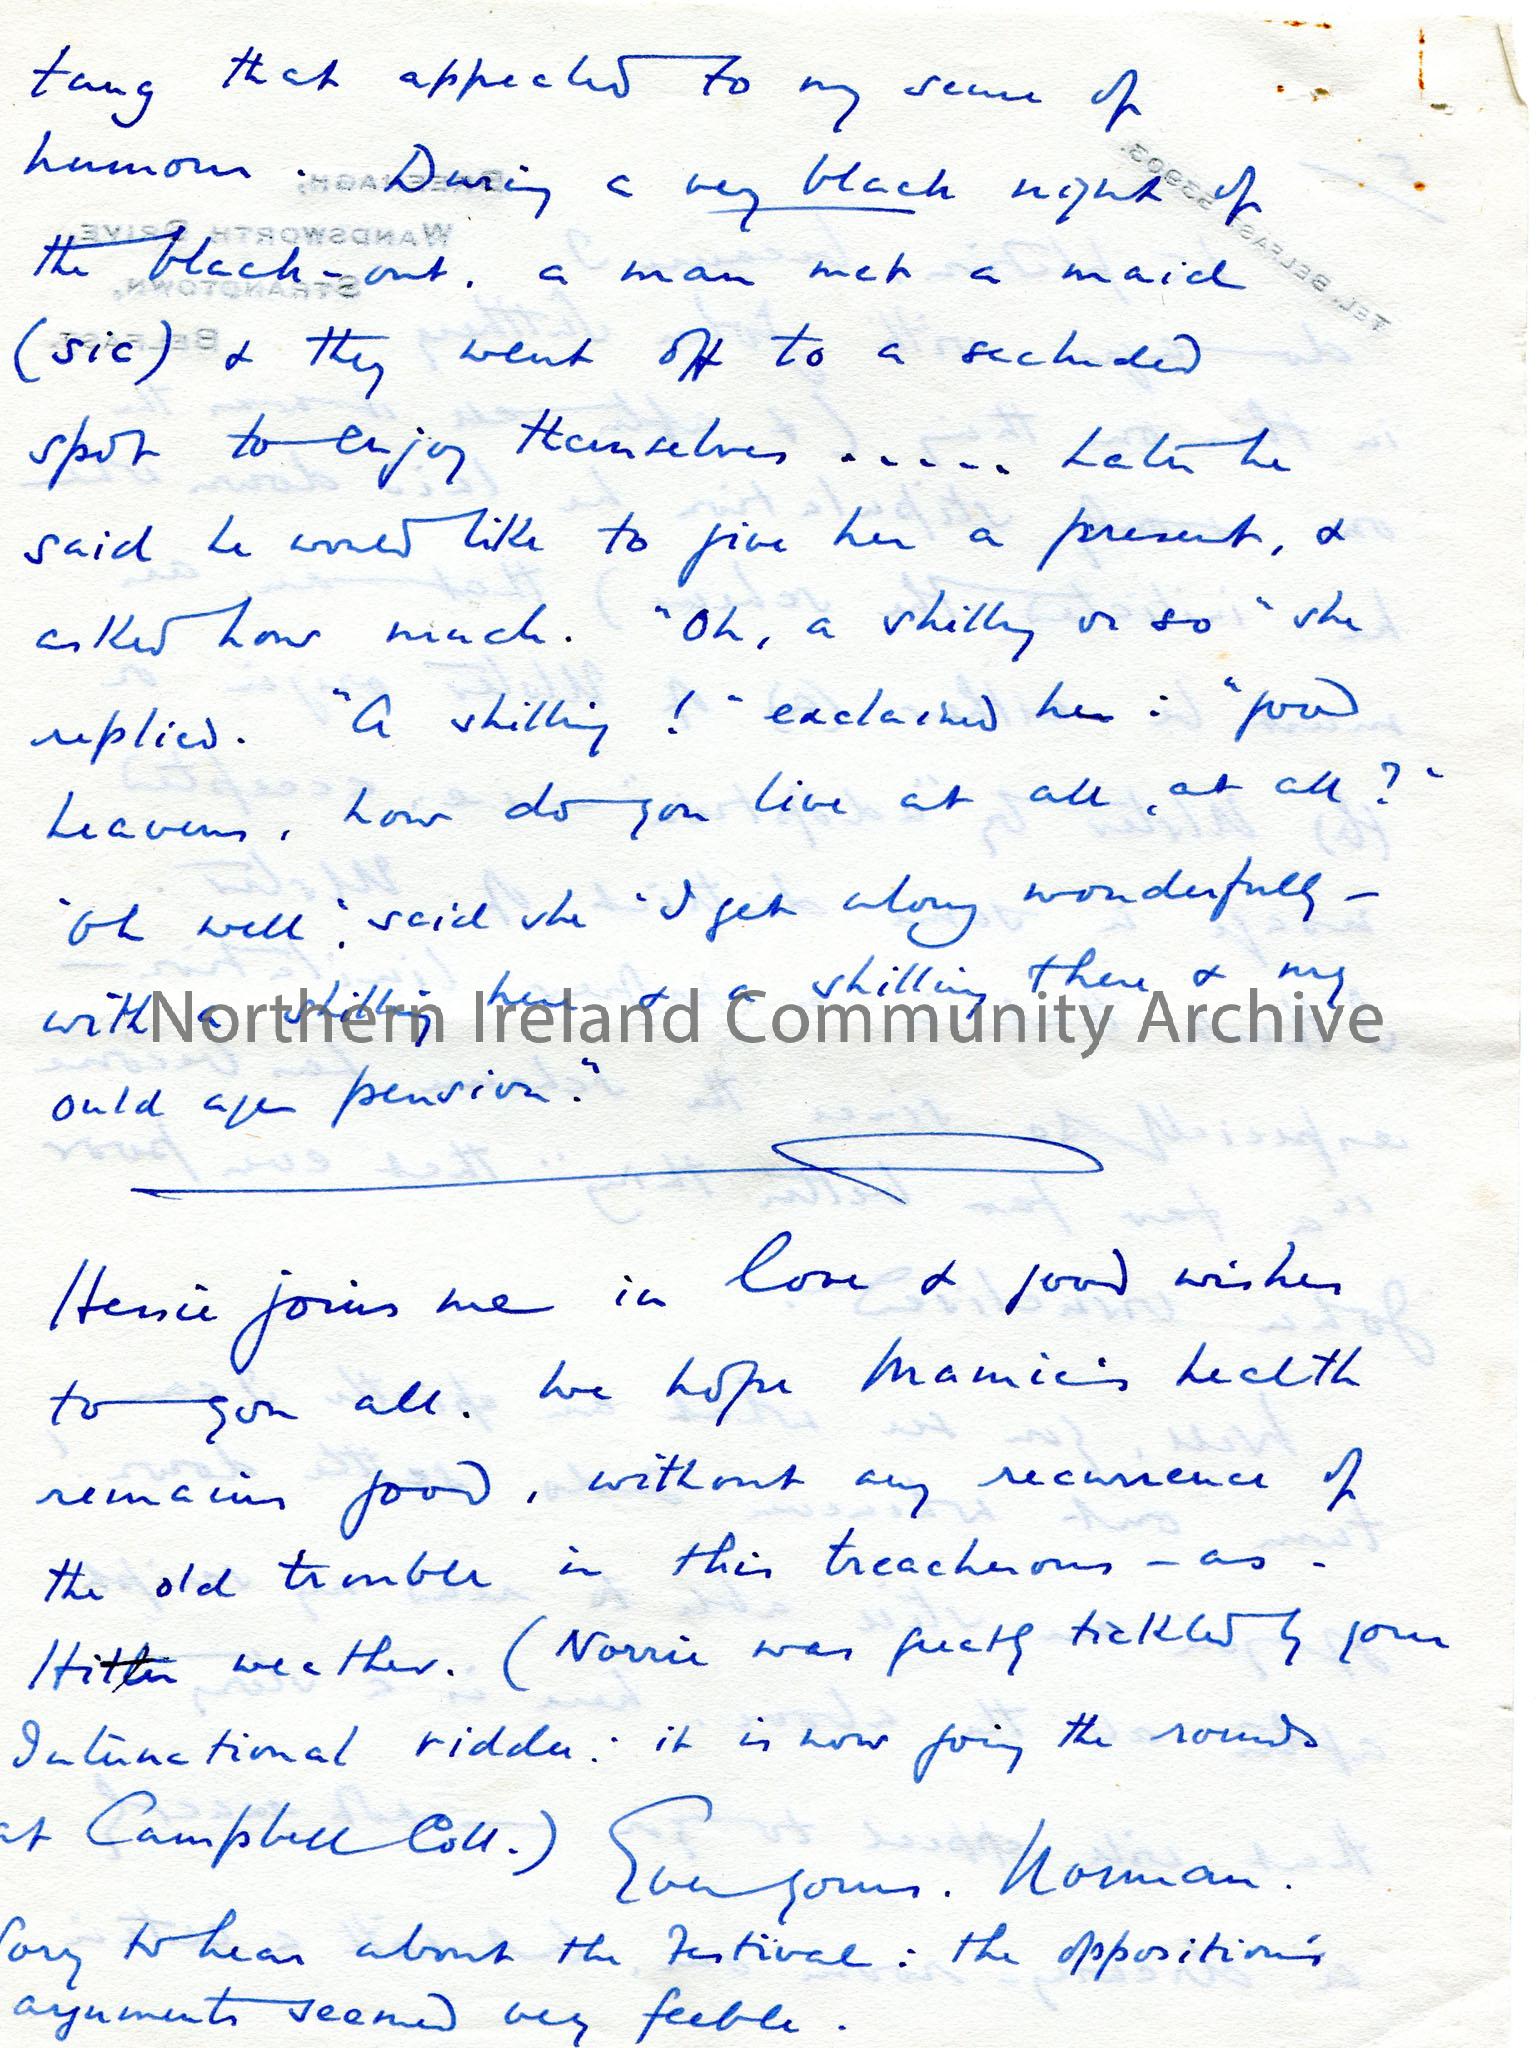 tang that appealed to my sense of
humour. During a very black night of
the black-out, a man met a maid
(sic) & they went off to a secluded
spot to enjoy themselves ..... Later he
said he would like to give her a present, &
asked how much. "Oh, a shilling or so" she
replied. "A shilling!" exclaimed he: "good
heavens, how do you live at all, at all?"
"Oh well", said she "I get along wonderfully –
with a shilling here & a shilling there & my
ould age pension."
Hessie joins me in love & good wishes
to you all. We hope Mamie's health
remains good, without any recurrence of
the old trouble in this treacherous-as-
Hitler weather. (Norrie was greatly tickled by your
International riddle: it is now going the rounds
at Campbell Coll.) Ever yours. Norman.
Sorry to hear about the Festival: the opposition's
arguments seemed very feeble.
Northern Ireland Community Archive
BREENAGH,
WANDSWORTH DRIVE,
STRANDTOWN,
BELFAST.
TEL. BELFAST 53903.